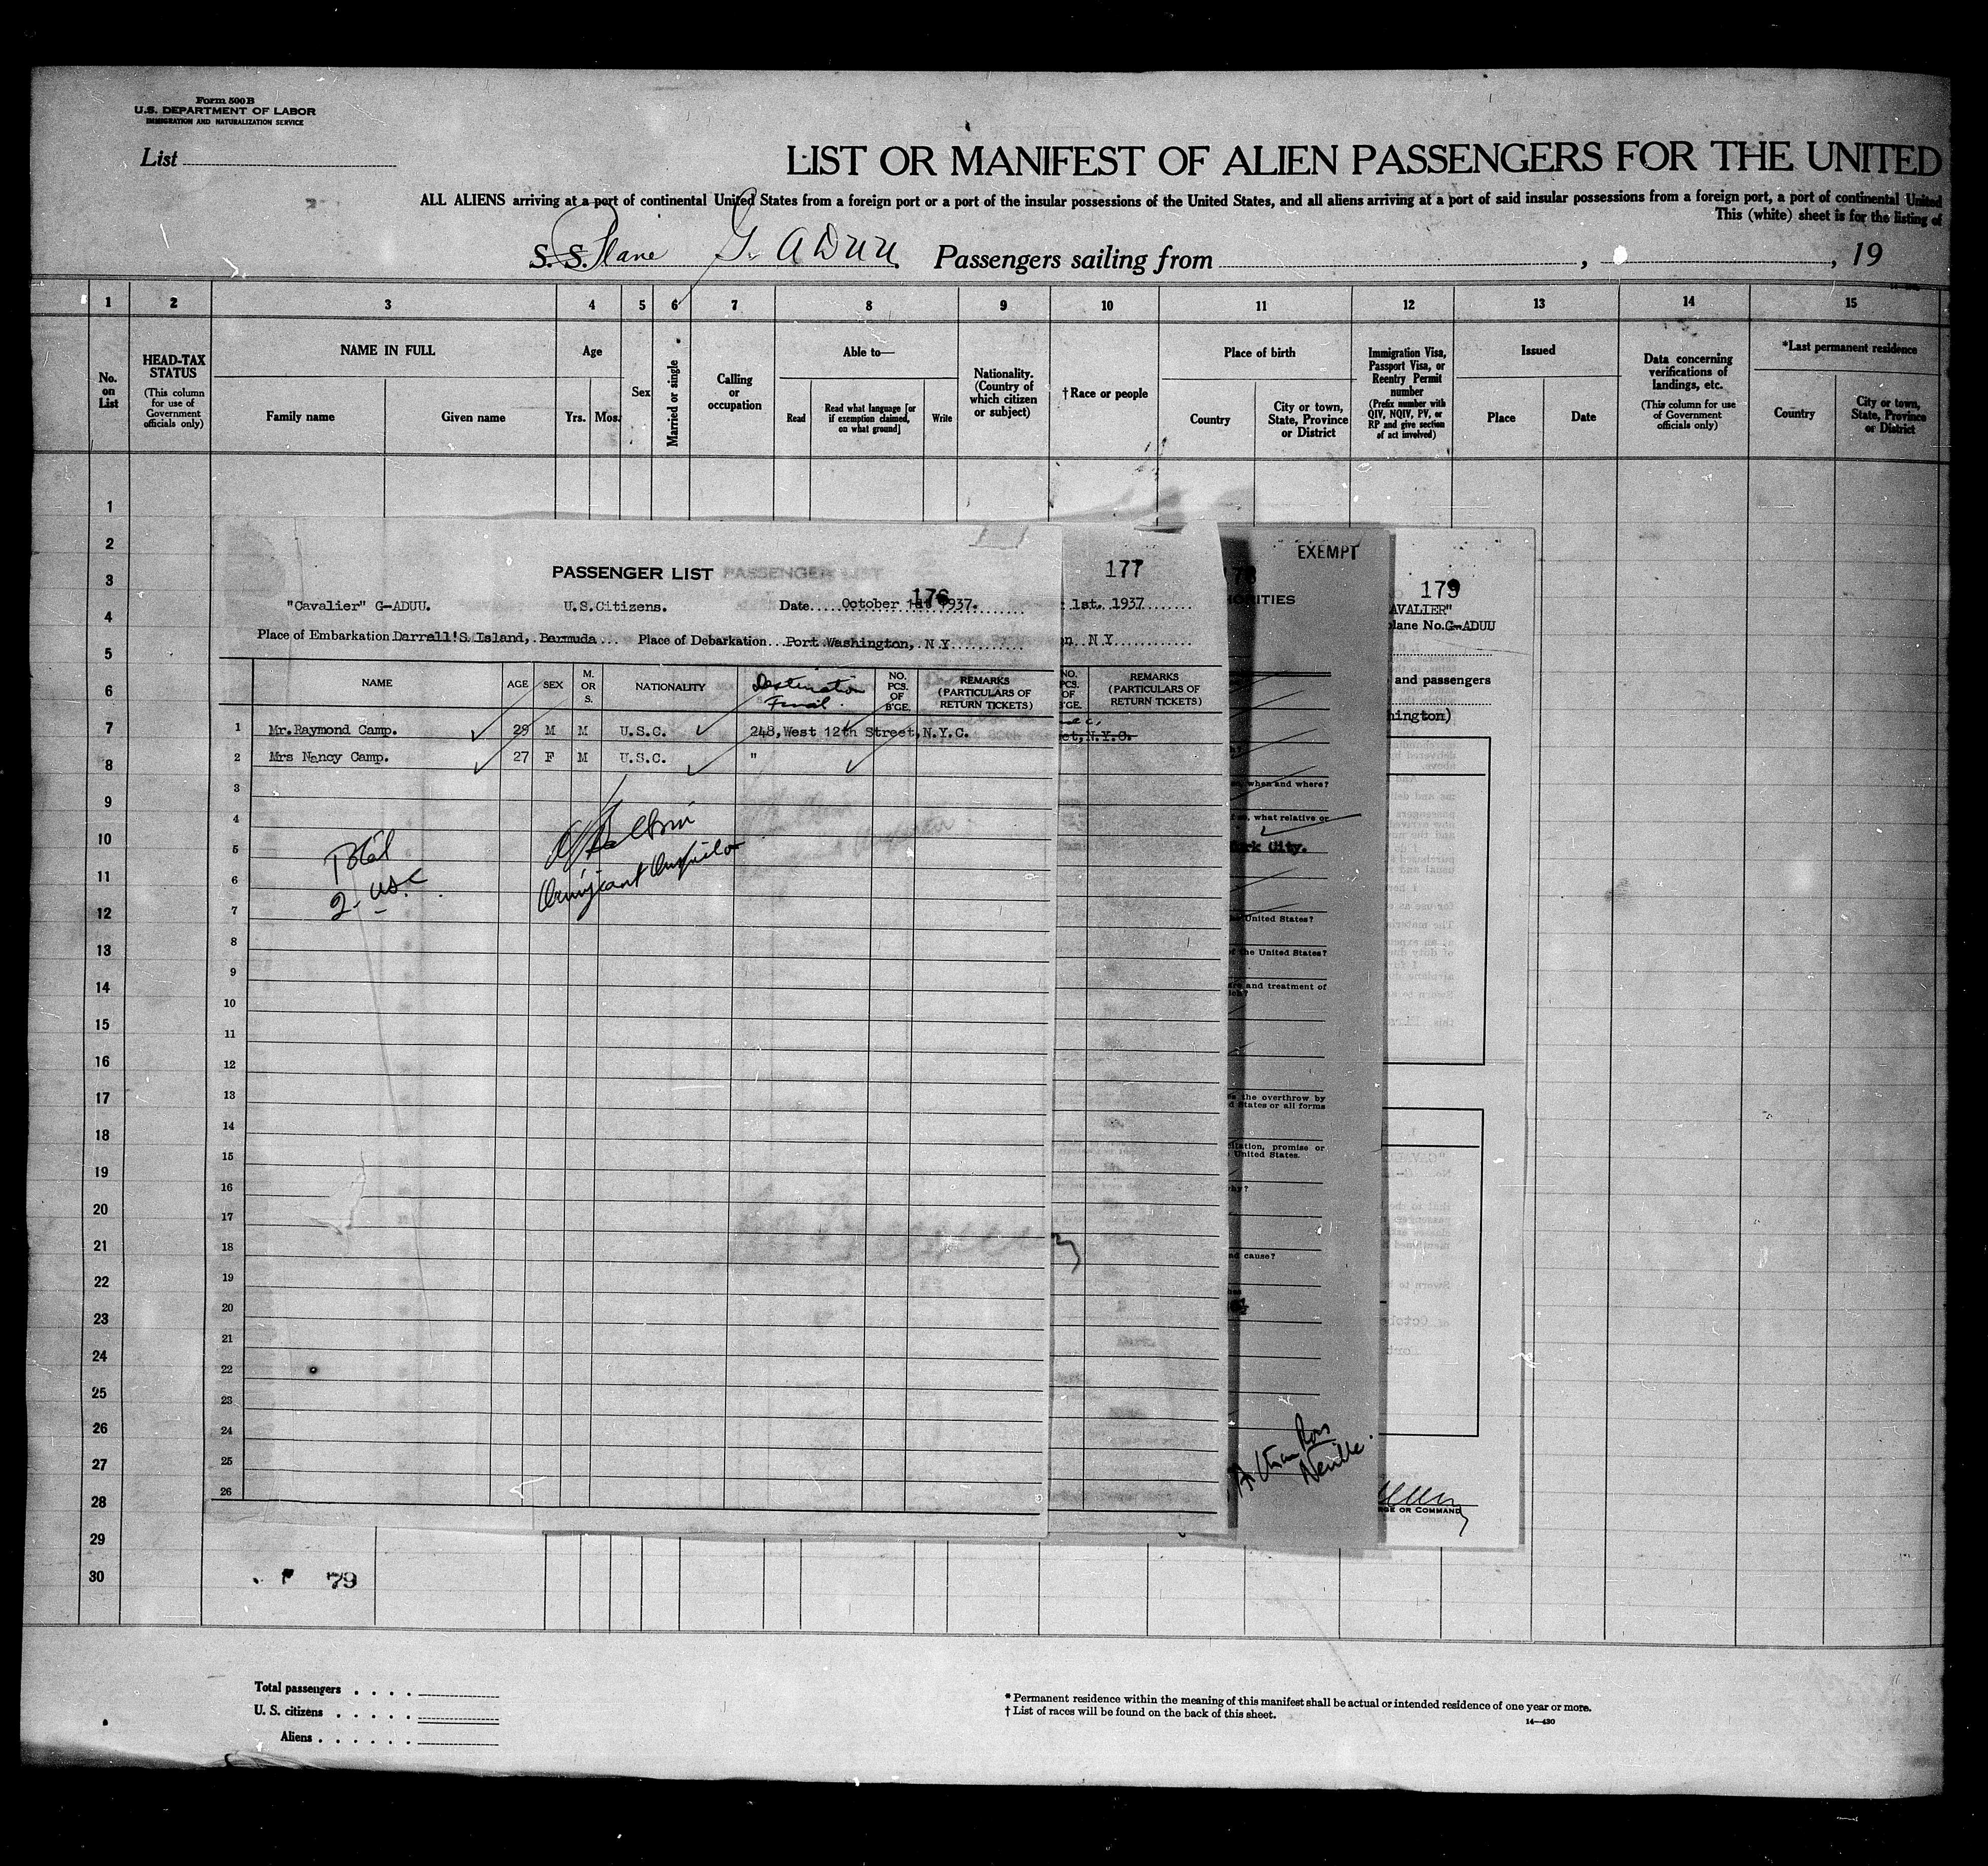 Form 500 B
U.S. DEPARTMENT OF LABOR
IMMIGRATION AND NATURALIZATION SERVICE
List
LIST OR MANIFEST OF ALIEN PASSENGERS FOR THE UNITED
ALL ALIENS arriving at a port of continental United States from a foreign port or a port of the insular possessions of the United States, and all aliens arriving at a port of said insular possessions from a foreign port, a port of continental United
This (white) sheet is for the listing of
S. S. Plane G. ADUU Passengers sailing from , , 19
1 2 3 4 5 6 7 8 9 10 11 12 13 14 15
No. on List
HEAD-TAX STATUS
(This column for use of Government officials only)
NAME IN FULL
Family name
Given name
Age
Yrs.
Mos.
Sex
Married or single
Calling or occupation
Able to—
Read
Read what language [or if exemption claimed, on what ground]
Write
Nationality. (Country of which citizen or subject)
† Race or people
Place of birth
Country
City or town, State, Province or District
Immigration Visa, Passport Visa, or Reentry Permit number
(Prefix number with QIV, NQIV, PV, or RP and give section of act involved)
Issued
Place
Date
Data concerning verifications of landings, etc.
(This column for use of Government officials only)
*Last permanent residence
Country
City or town, State, Province or District
1
2
3
4
5
6
7
8
9
10
11
12
13
14
15
16
17
18
19
20
21
22
23
24
25
26
27
28
29
30
PASSENGER LIST
176
"Cavalier" G-ADUU. U.S.Citizens. Date October 1st 1937.
Place of Embarkation Darrell'S Island, Bermuda Place of Debarkation Port Washington, N Y
NAME AGE SEX M. OR S. NATIONALITY Destination Final. NO. PCS. OF B'GE. REMARKS (PARTICULARS OF RETURN TICKETS)
1 Mr.Raymond Camp. 29 M M U.S.C. 248,West 12th Street,N.Y.C.
2 Mrs Nancy Camp. 27 F M U.S.C. "
3
4
5
6
7
8
9
10
11
12
13
14
15
16
17
18
19
20
21
22
23
24
25
26
Total
2 - USC
177
1st. 1937
N Y
NO. PCS. OF B'GE.
REMARKS (PARTICULARS OF RETURN TICKETS)
et,N.Y.C.
EXEMPT
when and where?
what relative or
York City.
United States?
the United States?
and treatment of
the overthrow by
States or all forms
promise or
United States.
cause?
Neville.
179
AVALIER"
plane No.G-ADUU
and passengers
hington)
OR COMMAND
79
Total passengers . . . .
U. S. citizens . . . . .
Aliens . . . . . .
* Permanent residence within the meaning of this manifest shall be actual or intended residence of one year or more.
† List of races will be found on the back of this sheet.
14—430